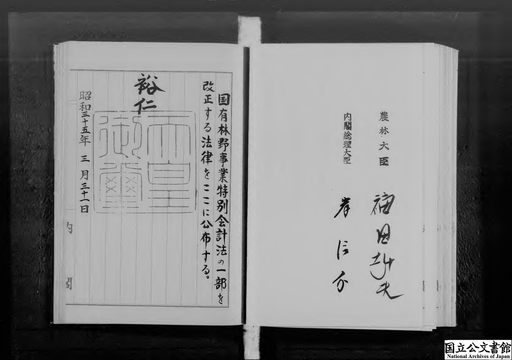 国有林野事業特別会計法の一部を
改正する法律をここに公布する。
裕仁
天皇
御璽
昭和三十五年三月三十一日
農林大臣
福田赳夫
内閣総理大臣
岸信介
国立公文書館
National Archives of Japan